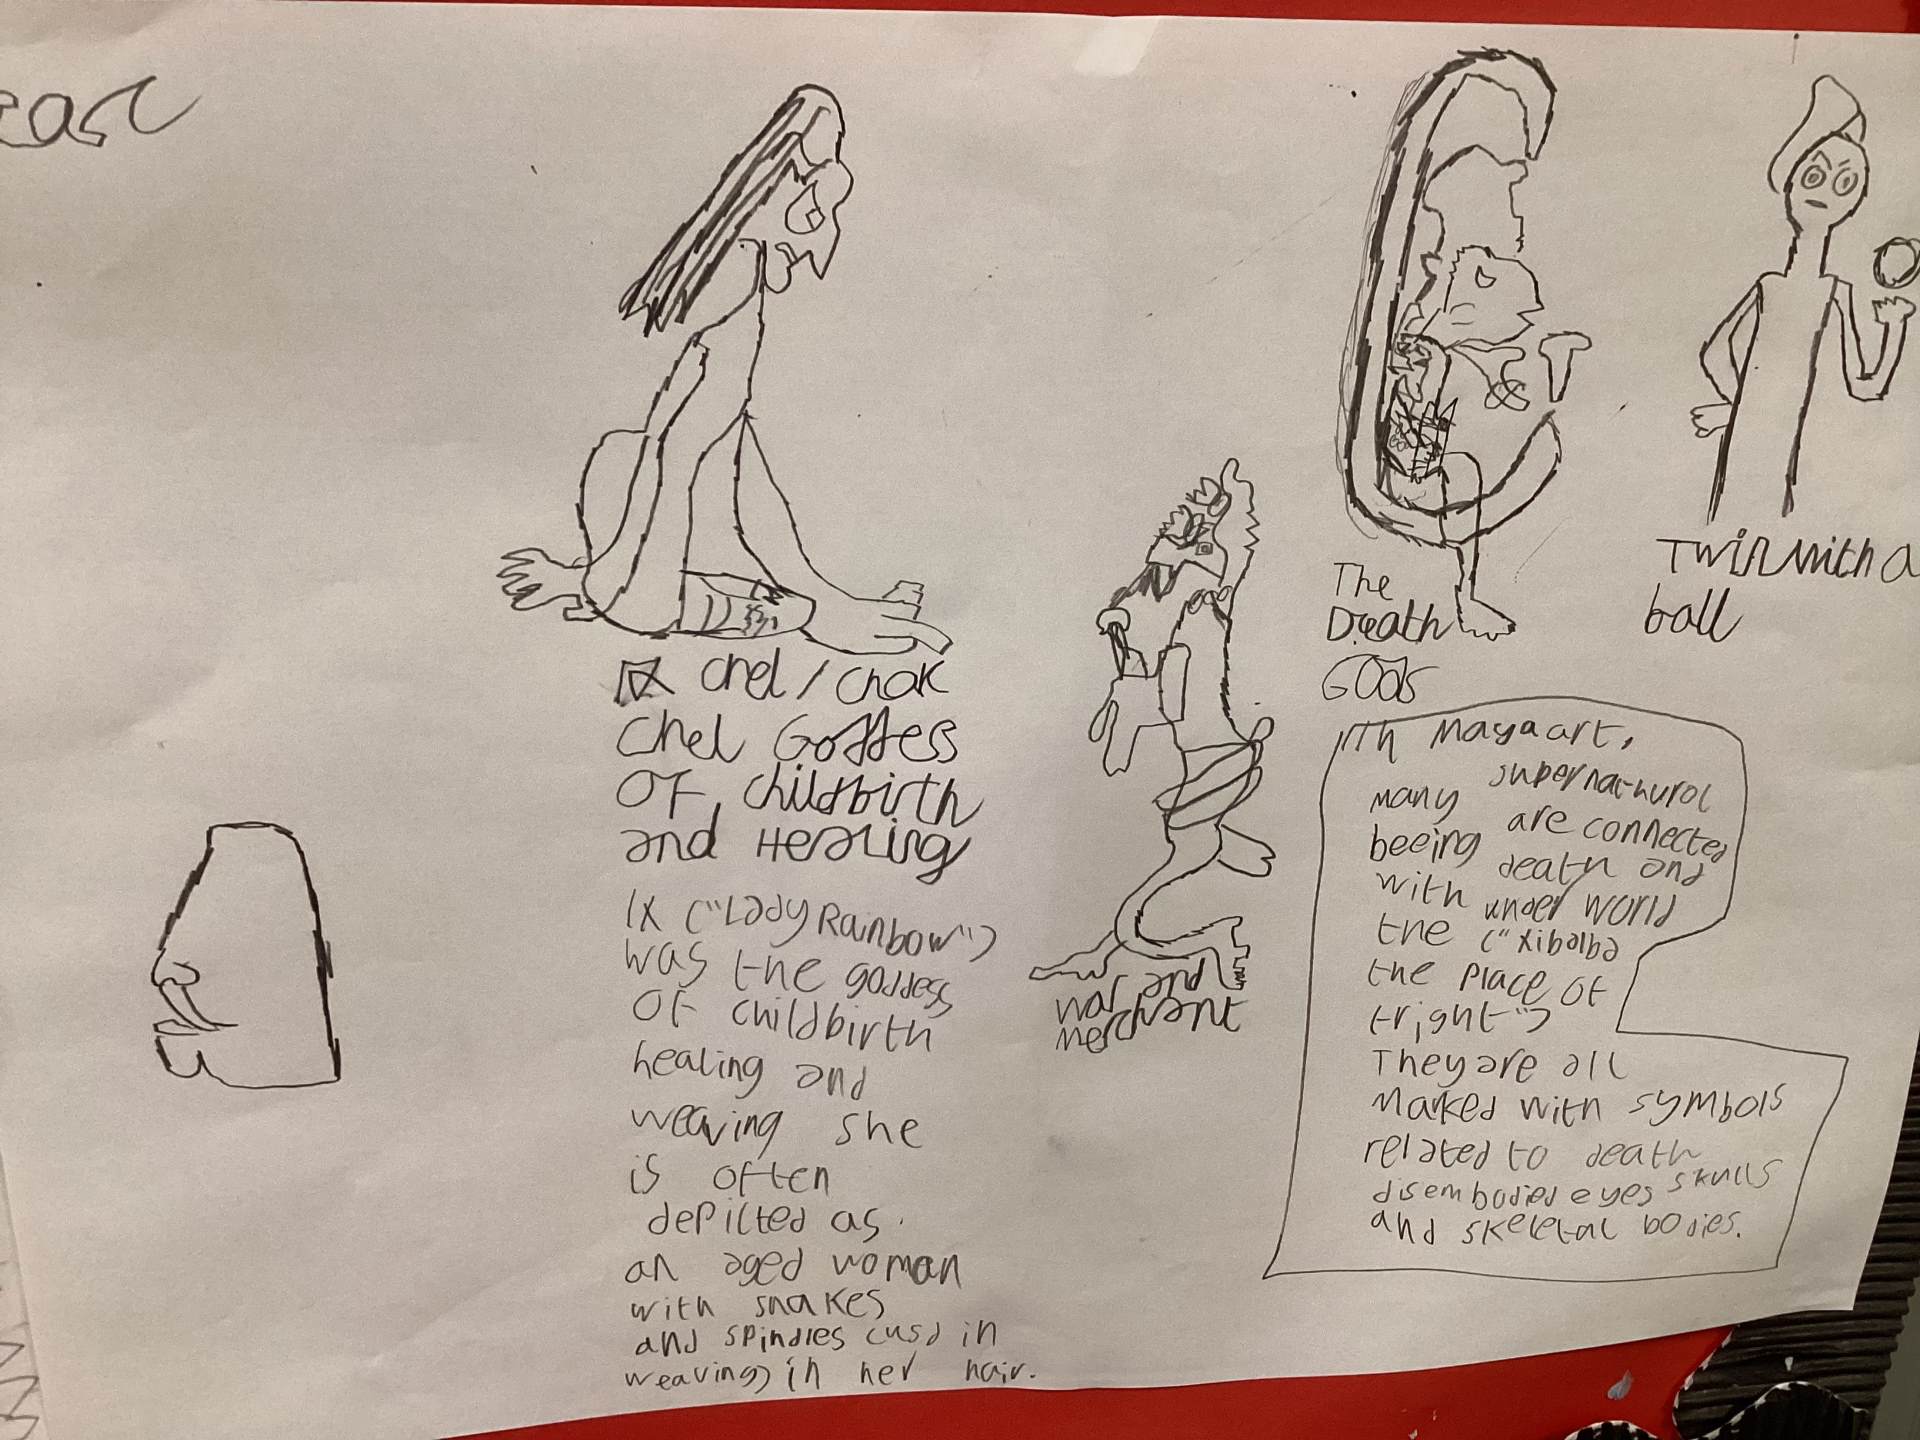 Ix Chel / Chak
Chel Goddess
Of, childbirth
and Healing
Ix ("Lady Rainbow")
was the goddess
of childbirth
healing and
weaving she
is often
depicted as
an aged woman
with snakes
and spindles cusd in
weaving) in her hair.
War and
merchant
The
Death
Gods
Twin with a
ball
In Maya art,
many supernatural
beeing are connected
with death and
the under world
("Xibalba
the place of
fright")
They are all
marked with symbols
related to death
disembodied eyes skulls
and skeletal bodies.